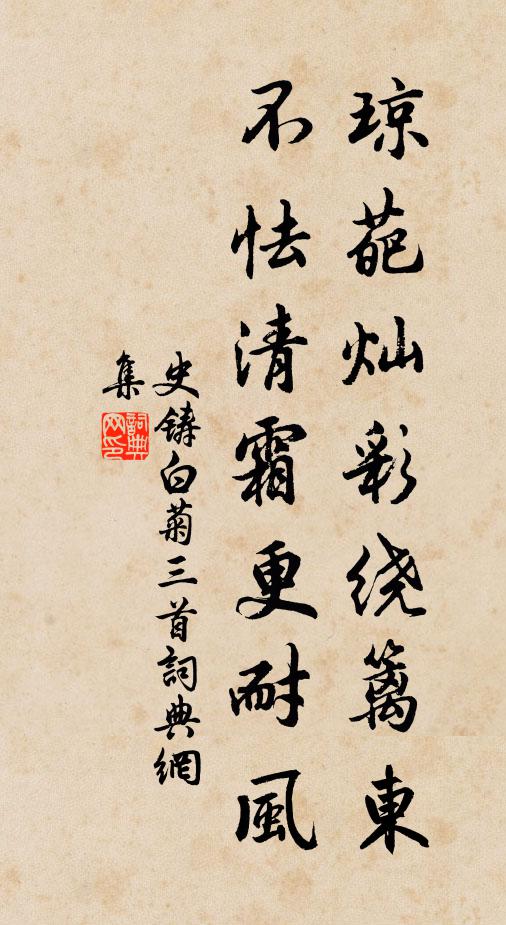 琼葩灿彩绕篱東
不怯清霜更耐風
史铸白菊三首詞典網
集
詞典
网印